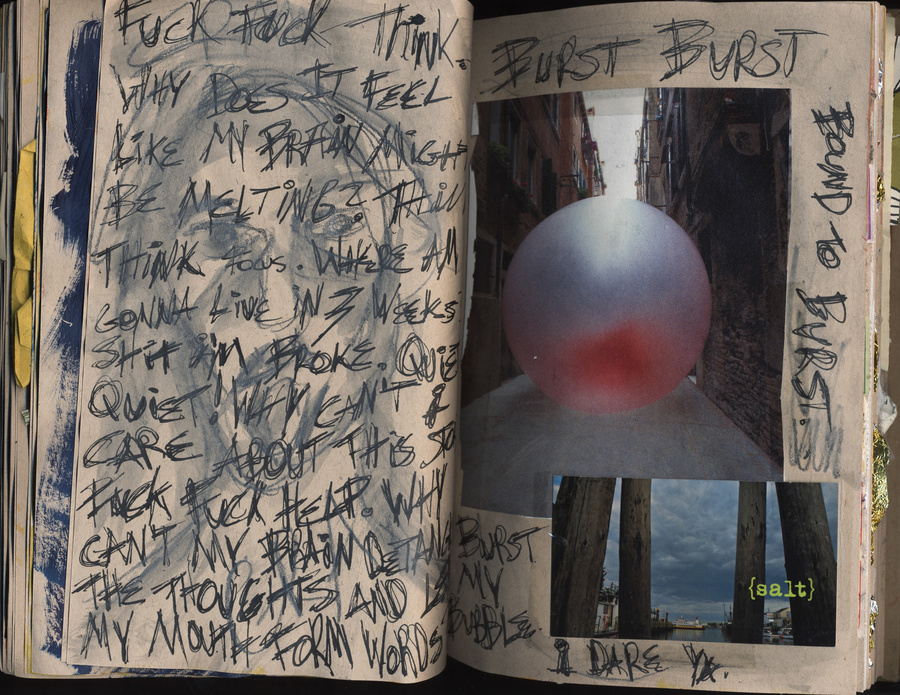 Fuck Fuck Think.
WHY DOES IT FEEL
LIKE MY BRAIN MIGH
BE MELTING? THIN
THINK . WHERE AM
GONNA LIVE IN 3 WEEKS
SHIT I'M BROKE. QUIE
QUIET! WHY CAN'T I
CARE ABOUT THIS
FUCK FUCK HELP. WHY
CAN'T MY BRAIN DETANG
THE THOUGHTS AND
MY MOUTH FORM WORDS.
BURST BURST
BOUND TO BURST.
{salt}
BURST
MY
BUBBLE.
I DARE YA.